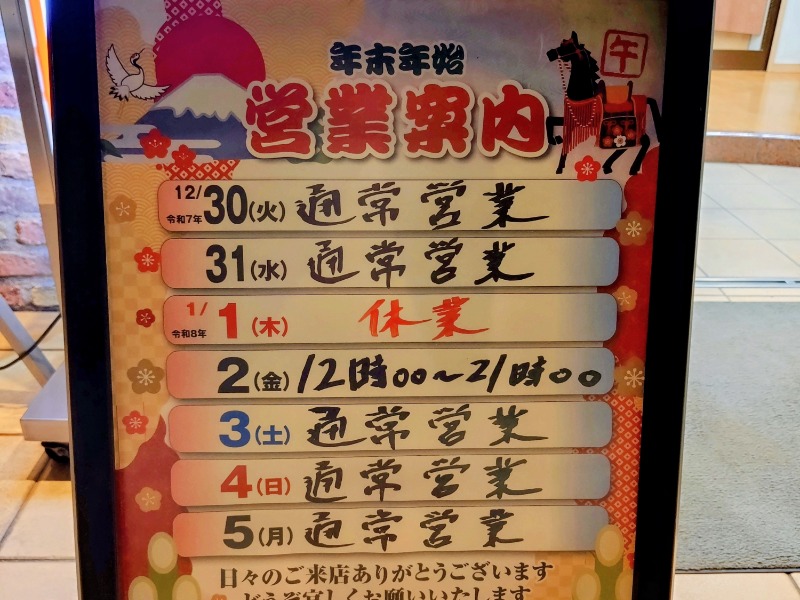 年末年始
午
営業案内
12/30(火) 通常営業
令和7年
31(水) 通常営業
1/1(木) 休業
令和8年
2(金) 12時00～21時00
3(土) 通常営業
4(日) 通常営業
5(月) 通常営業
日々のご来店ありがとうございます
どうぞ宜しくお願いいたします